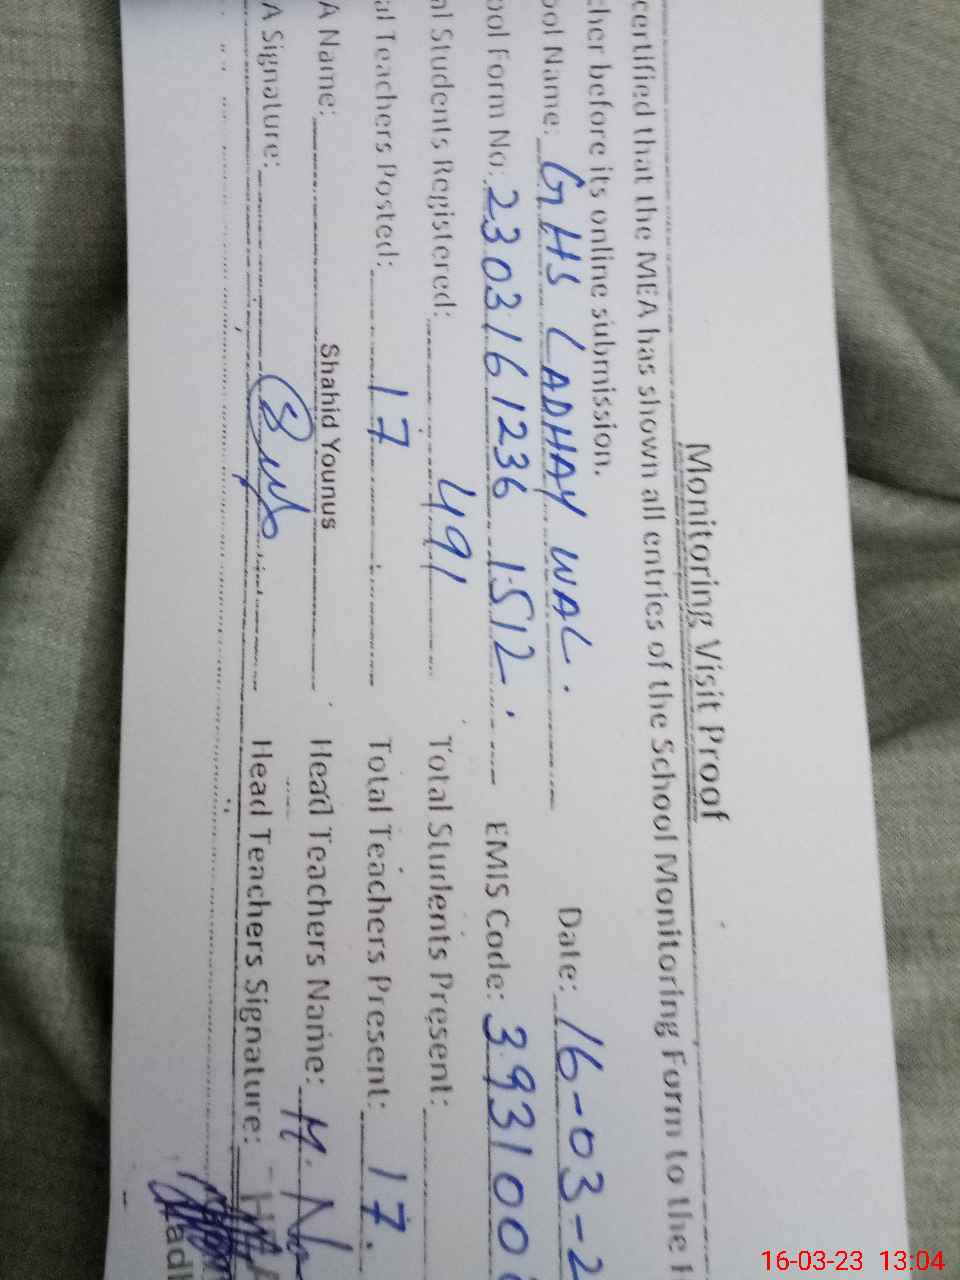 Monitoring Visit Proof
certified that the MEA has shown all entries of the School Monitoring Form to the H
cher before its online submission.
ool Name: GHS LADHAY WAL. Date: 16-03-2
ool Form No: 230316161236 1512. EMIS Code: 393100
al Students Registered: 491 Total Students Present:
al Teachers Posted: 17 Total Teachers Present: 17.
A Name: Shahid Younus Head Teachers Name: M.
A Signature: Head Teachers Signature:
16-03-23 13:04